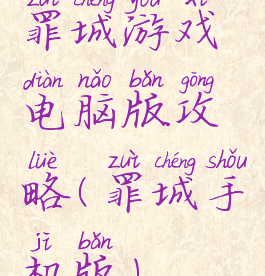 zuì chéng yóu xì
罪城游戏
diàn nǎo bǎn gōng
电脑版攻
lüè zuì chéng shǒu
略(罪城手
jī bǎn
机版)